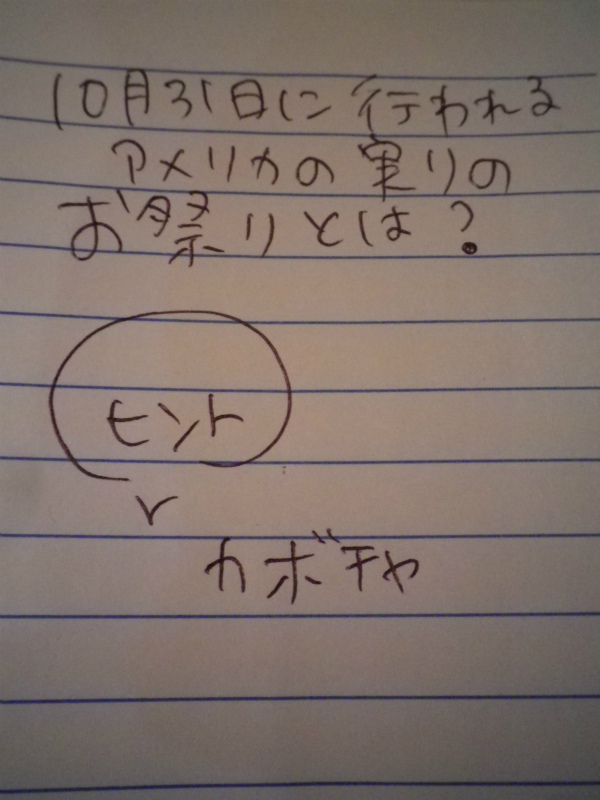 10月31日に行われる
アメリカの実りの
お祭りとは?
ヒント
カボチャ